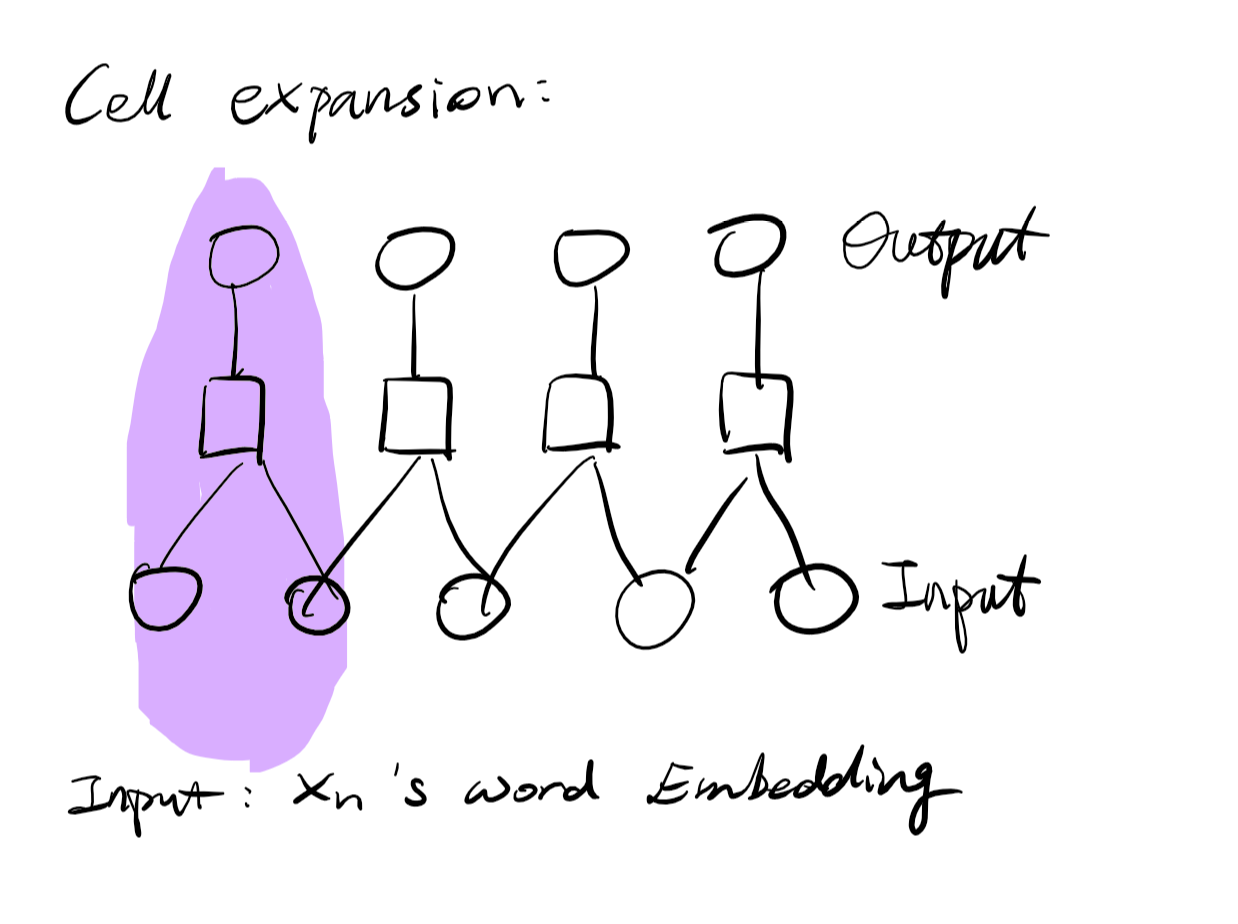 Cell expansion:
Output
Input
Input: Xn's word Embedding